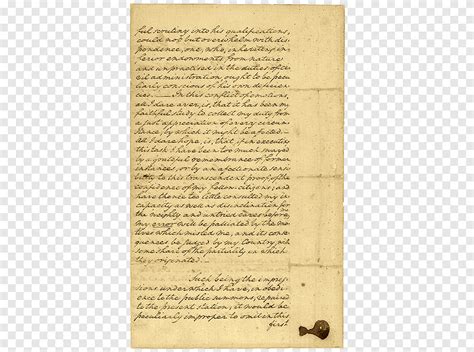 ful scrutiny into his qualifications,
could not but overwhelm with dis-
pondence, one, who, inheriting in-
ferior endowments from nature
and unpractised in the duties of ci-
vil administration, ought to be pecu-
liarly conscious of his own deficien-
cies.— In this conflict of emotions,
all I dare aver, is, that it has been my
faithful study to collect my duty from
a just appreciation of every circum-
stance, by which it might be affected.—
All I dare hope, is, that, if in executing
this task I have been too much swayed
by a grateful remembrance of former
instances, or by an affectionate sensi-
bility to this transcendent proof of the
confidence of my fellow citizens; and
have thence too little consulted my in-
capacity as well as disinclination for
the weighty and untried cares before me,
my error will be palliated by the mo-
tives which misled me, and its conse-
quences be judged by my Country, with
some share of the partiality in which
they originated.
Such being the impres-
sions under which I have, in obedi-
ence to the public summons, repaired
to the present station; it would be
peculiarly improper to omit in this
first